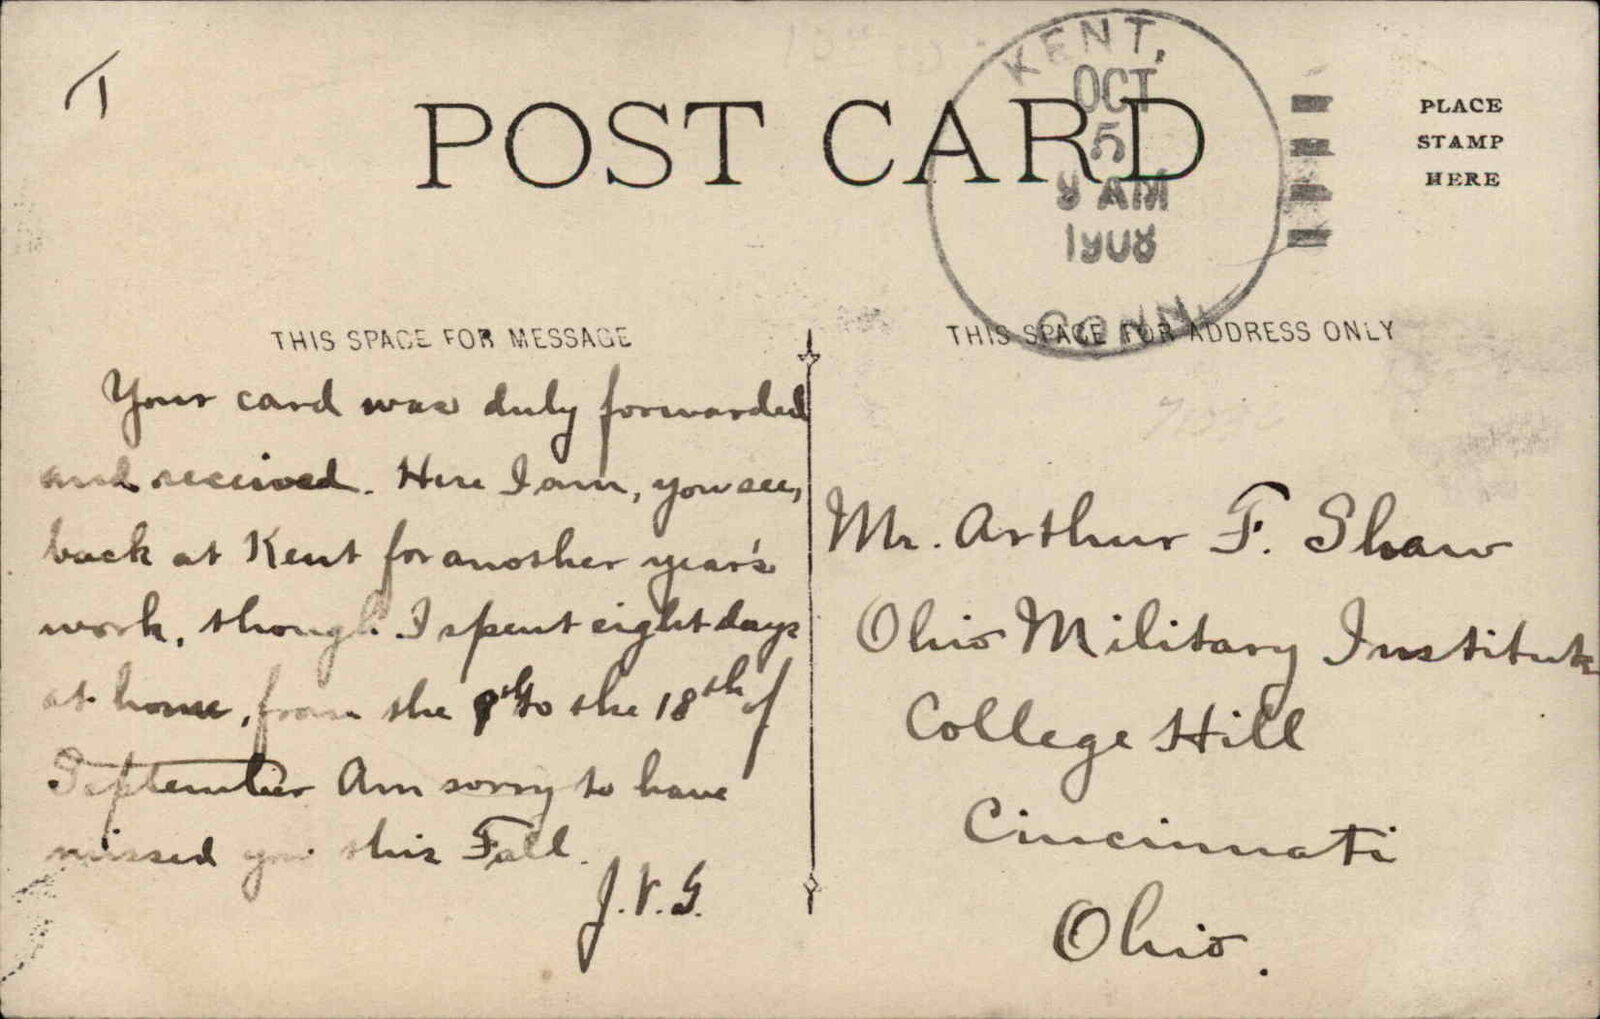 KENT,
OCT
5
AM
1908
CONN.
POST CARD
PLACE
STAMP
HERE
THIS SPACE FOR MESSAGE
Your card was duly forwarded
and received. Here I am, you see,
back at Kent for another year's
work, though I spent eight days
at home, from the to the 18th of
September Am sorry to have
missed you this Fall.
J.V.G.
THIS SPACE FOR ADDRESS ONLY
Mr. Arthur F. Shaw
Ohio Military Institute
College Hill
Cincinnati
Ohio.